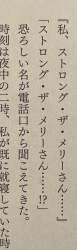 『私、ストロング・ザ・メリーさん……』
恐ろしい名が電話口から聞こえてきた。
「ストロング・ザ・メリーさん……!?」
時刻は夜中の二時、私が既に就寝していた時